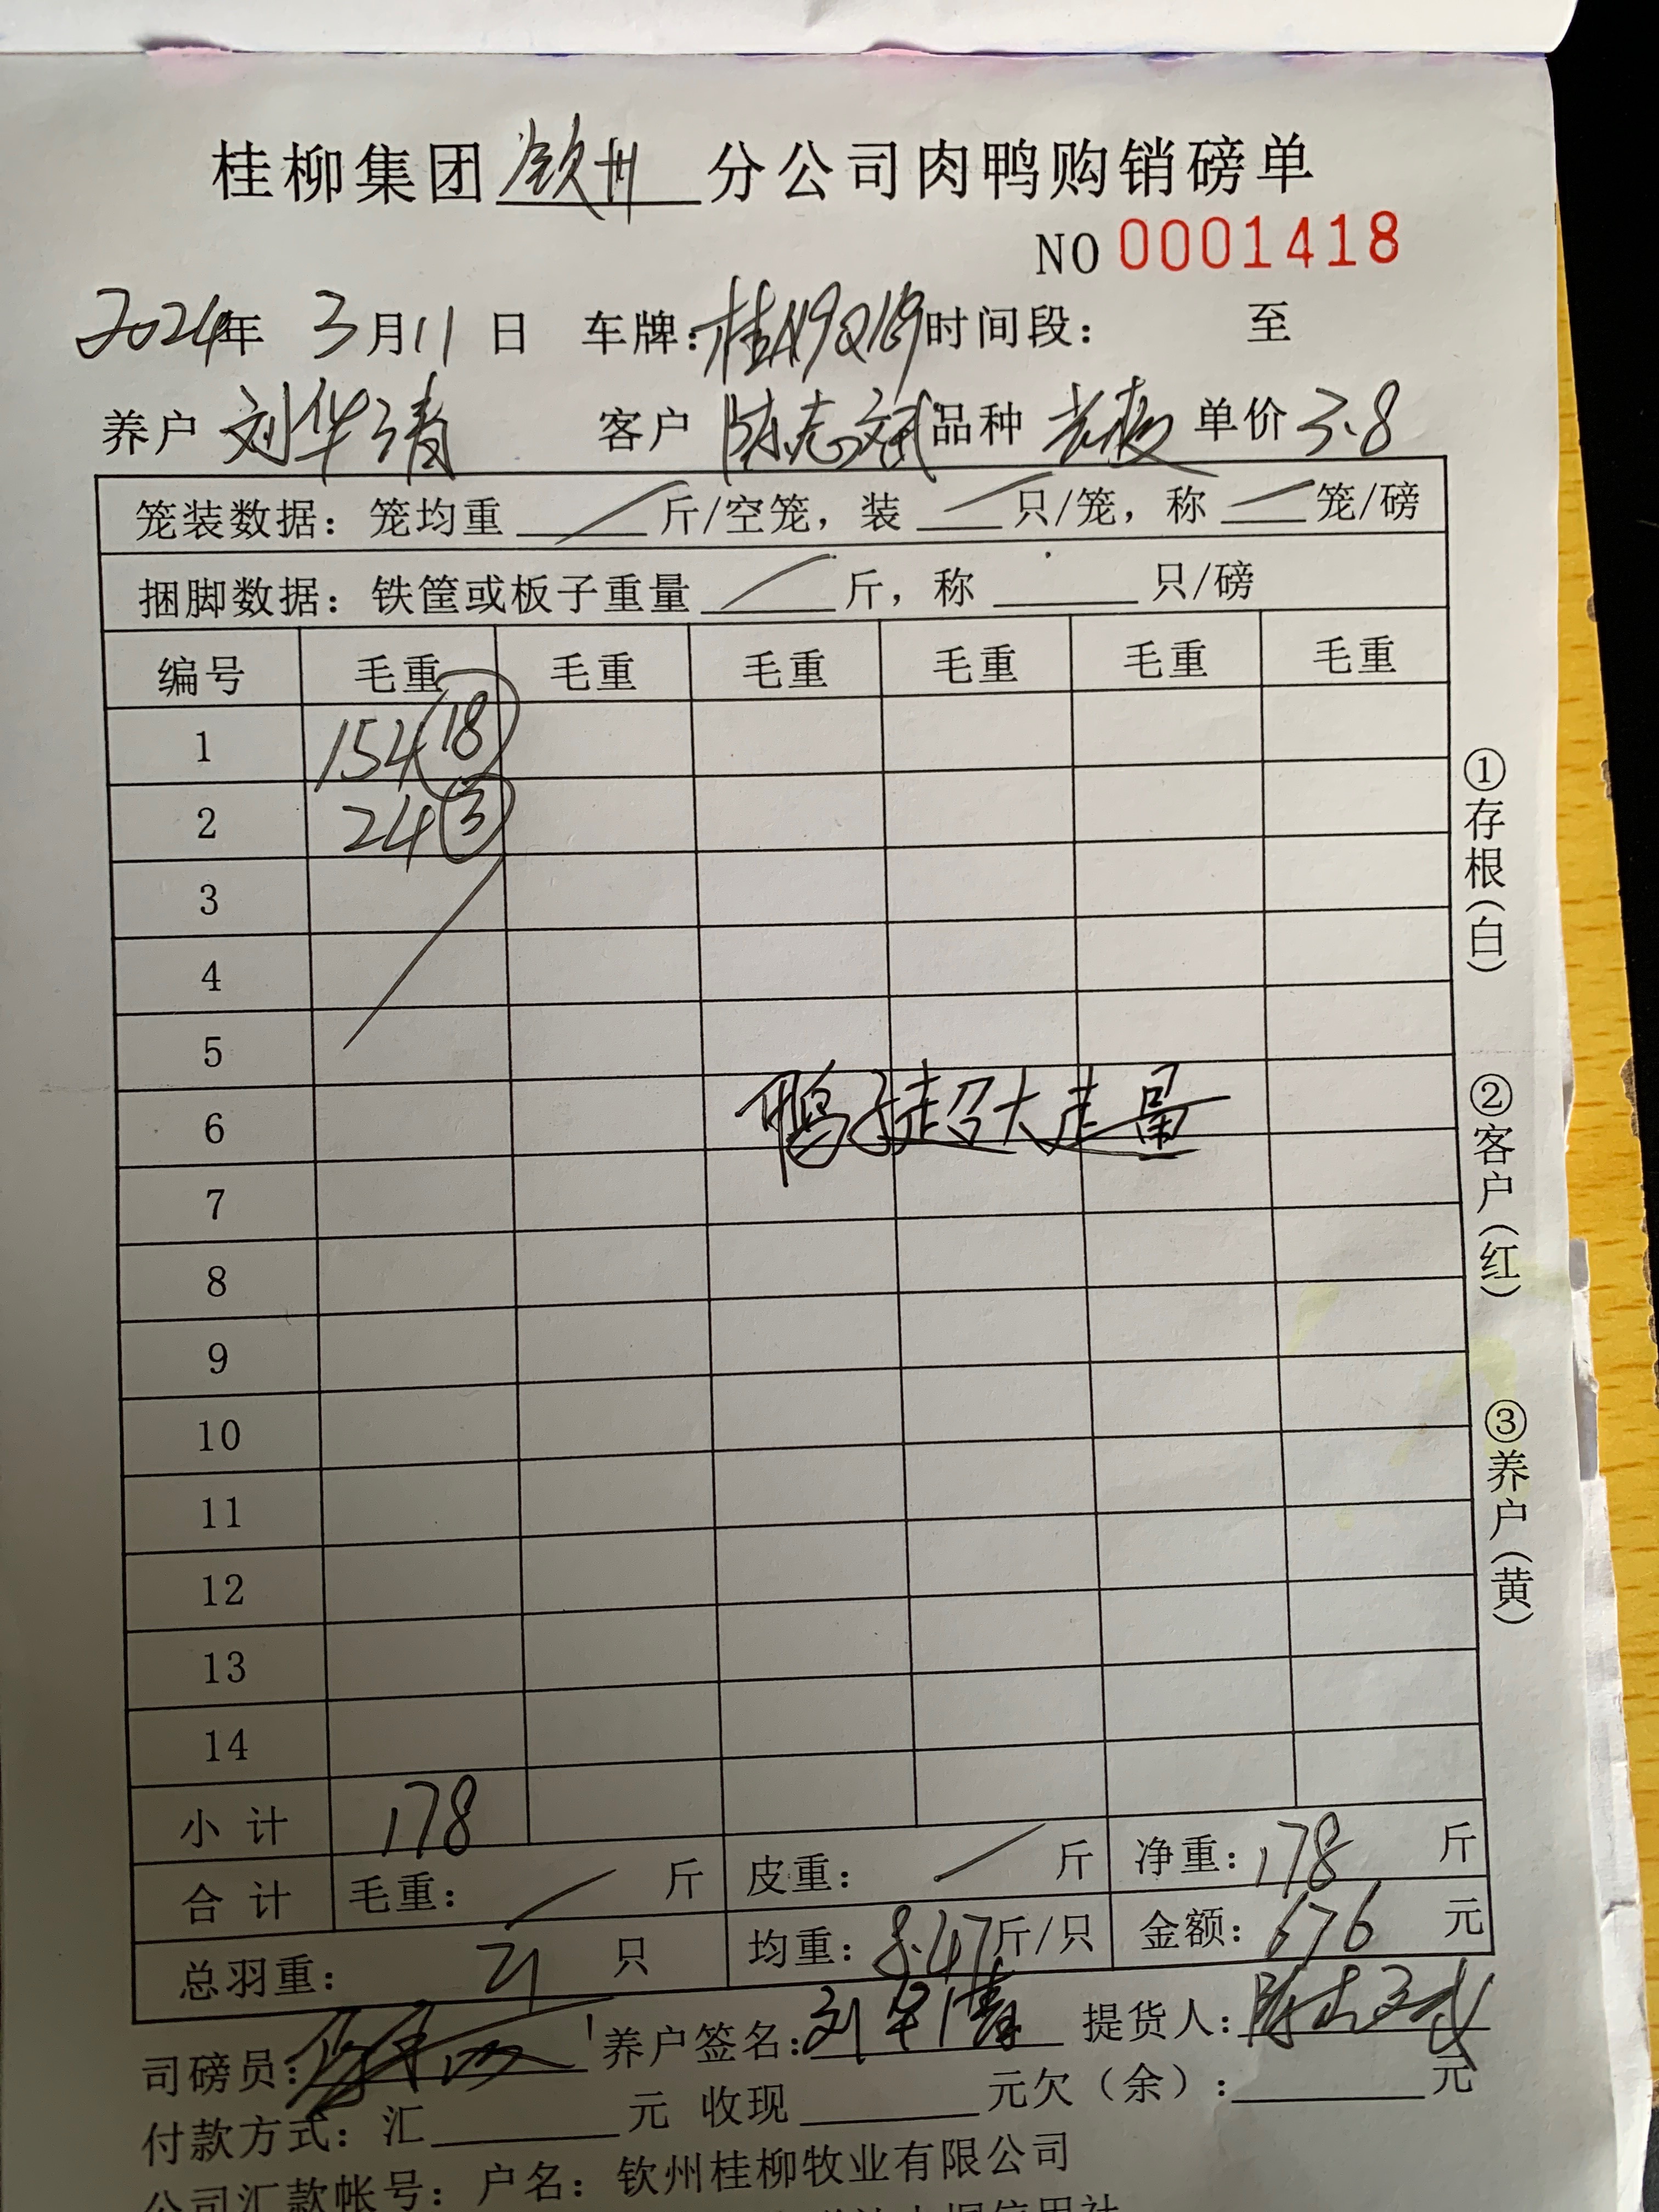 桂柳集团钦州分公司肉鸭购销磅单
NO 0001418
2024年 3月11日 车牌: 时间段: 至
养户 刘华清 客户 陈志斌 品种 单价 3.8
笼装数据: 笼均重 斤/空笼, 装 只/笼, 称 笼/磅
捆脚数据: 铁筐或板子重量 斤, 称 只/磅
编号 毛重 毛重 毛重 毛重 毛重 毛重
1 154 18
2 24 3
3
4
5
6 鸭子超大走量
7
8
9
10
11
12
13
14
小计 178
合计 毛重: 斤 皮重: 斤 净重: 178 斤
总羽重: 21 只 均重: 8.47斤/只 金额: 676 元
司磅员: 养户签名: 刘华清 提货人: 陈志斌
付款方式: 汇 元 收现 元欠(余): 元
公司汇款帐号: 户名: 钦州桂柳牧业有限公司
①存根(白)
②客户(红)
③养户(黄)